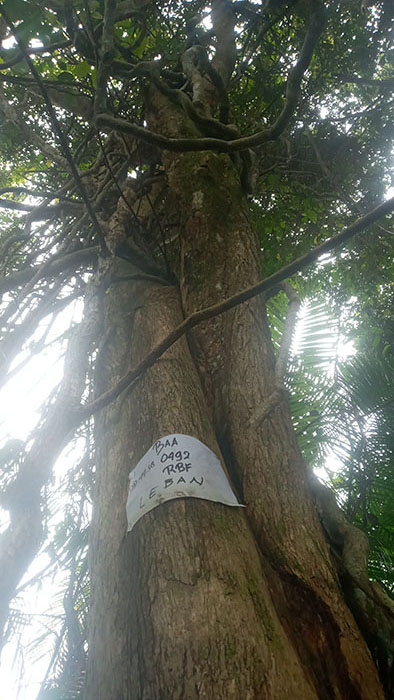 BAA
0492
RBF
LEBAN